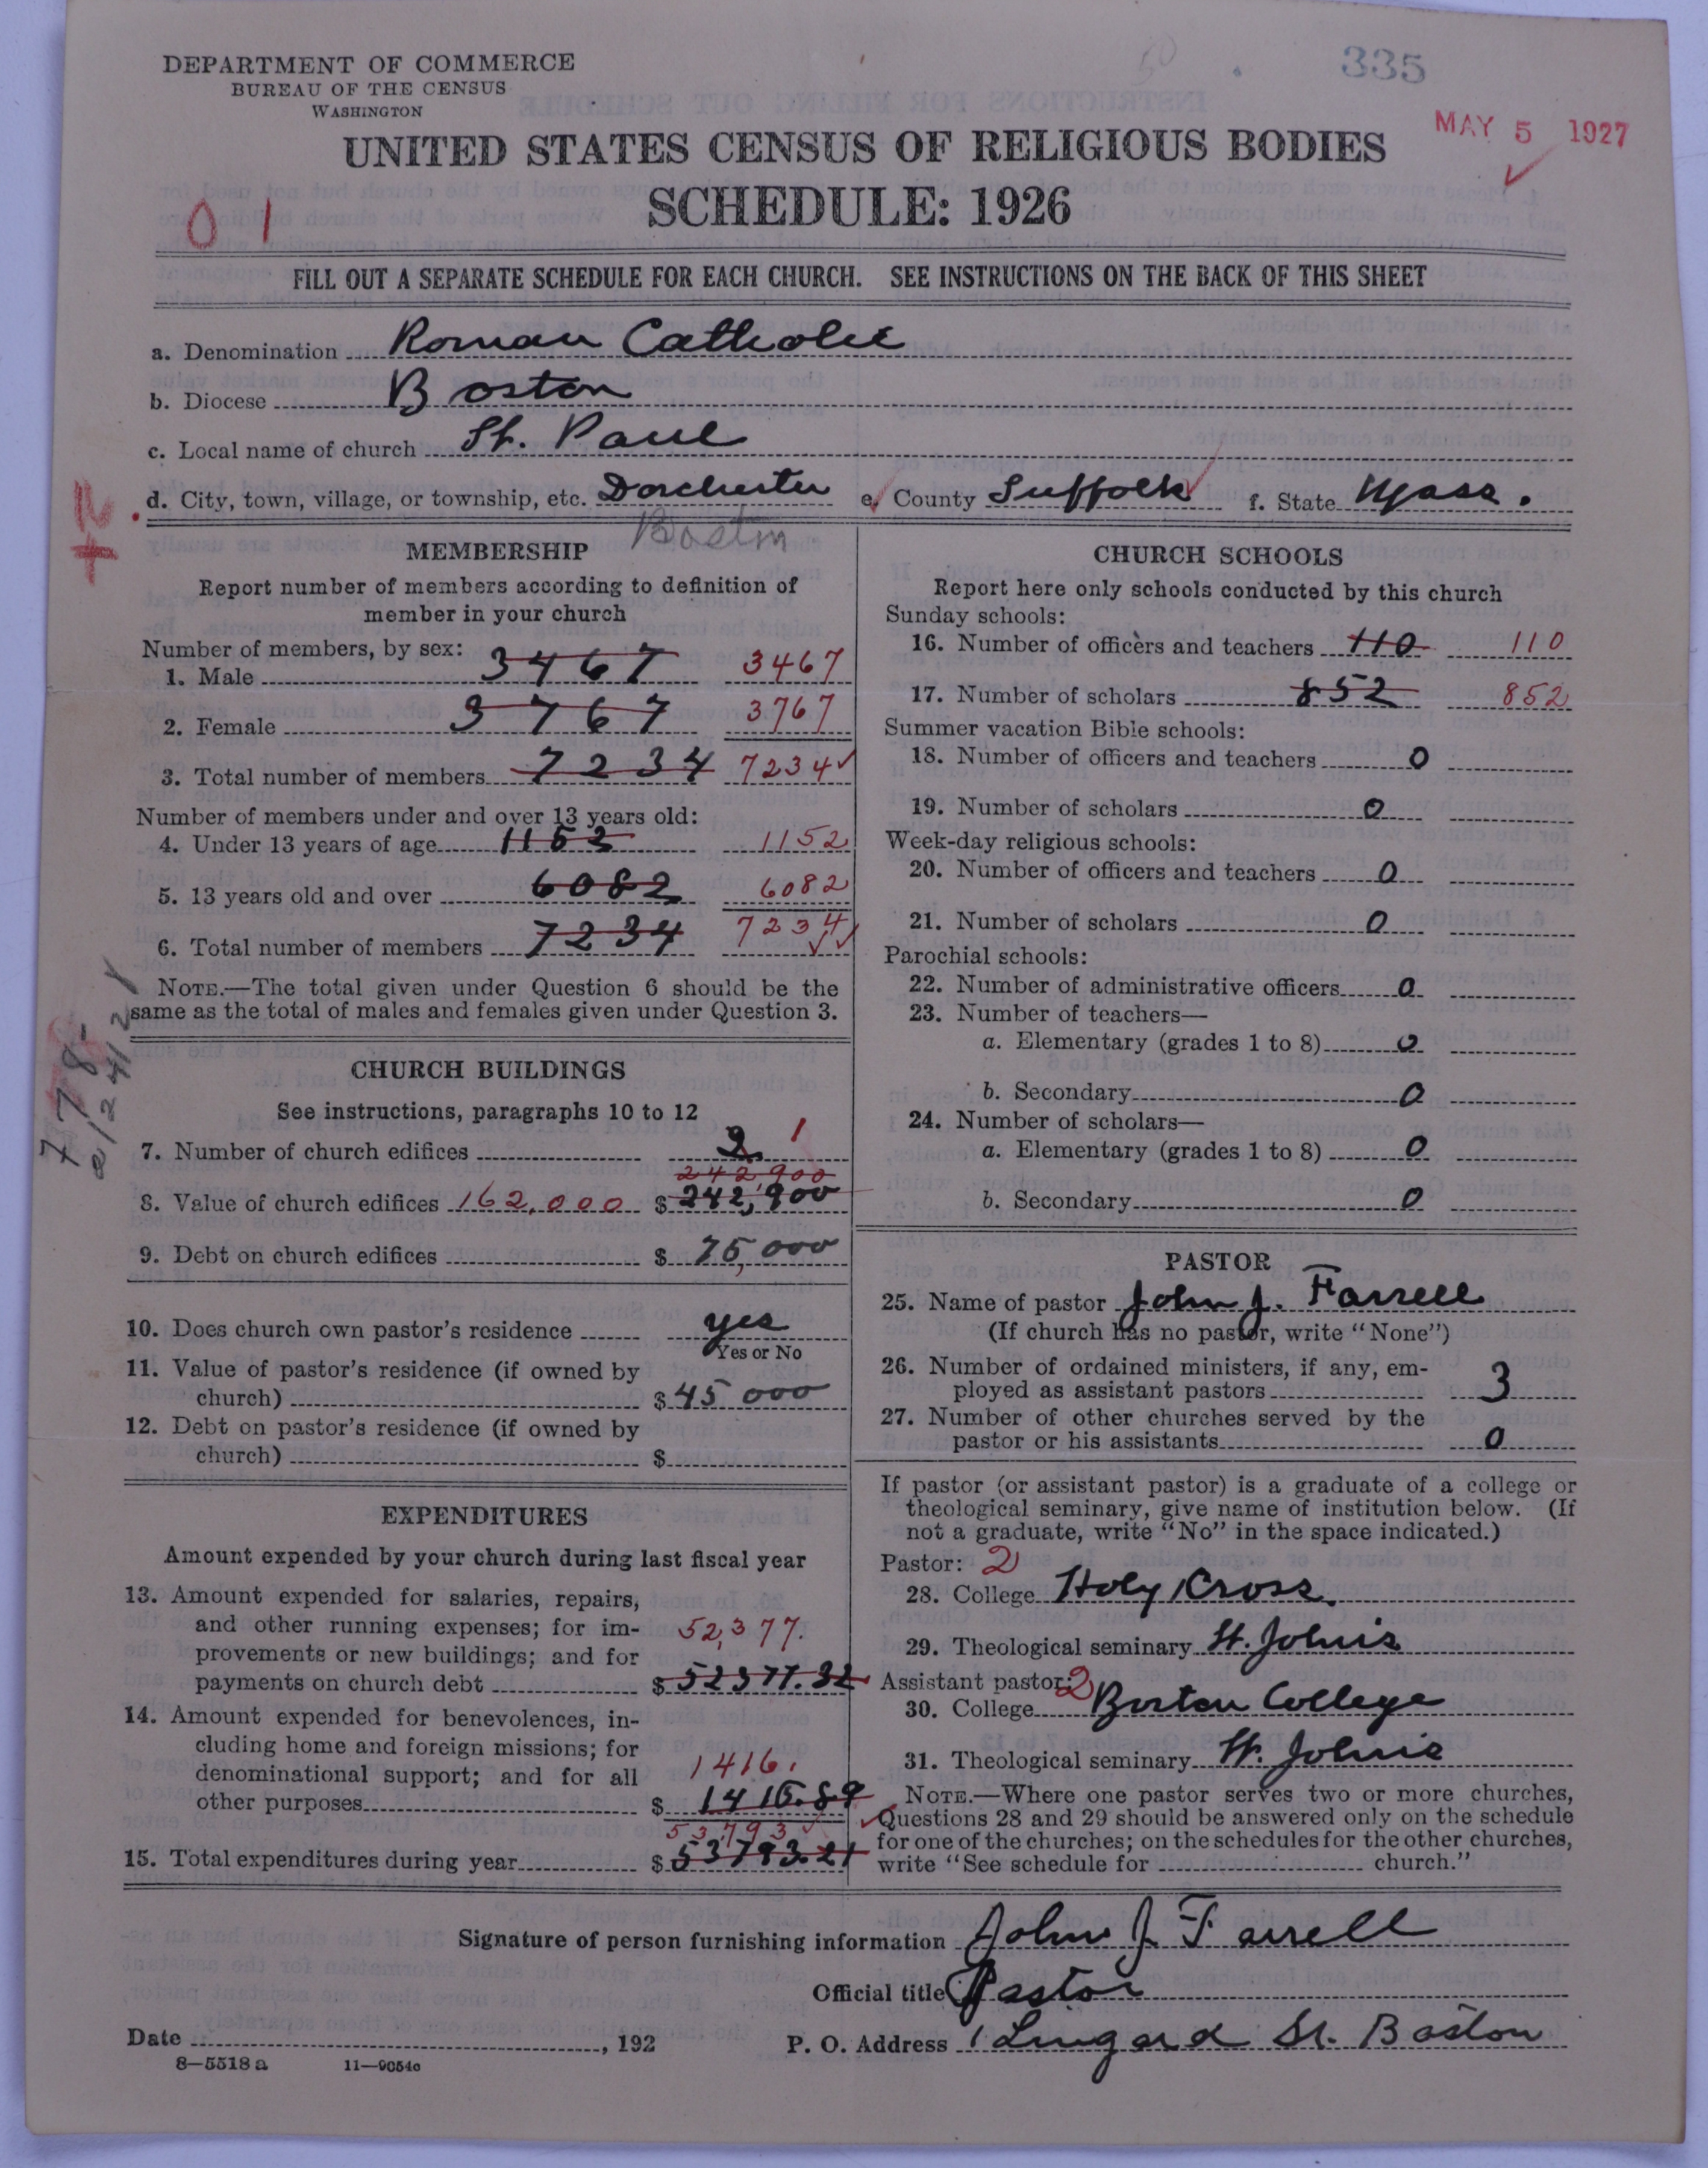 DEPARTMENT OF COMMERCE
BUREAU OF THE CENSUS
WASHINGTON
335
MAY 5 1927
UNITED STATES CENSUS OF RELIGIOUS BODIES
SCHEDULE: 1926
01
FILL OUT A SEPARATE SCHEDULE FOR EACH CHURCH. SEE INSTRUCTIONS ON THE BACK OF THIS SHEET
a. Denomination Roman Catholic
b. Diocese Boston
c. Local name of church St. Paul
d. City, town, village, or township, etc. Dorchester e. County Suffolk f. State Mass.
Boston
MEMBERSHIP
Report number of members according to definition of
member in your church
Number of members, by sex:
1. Male 3467 3467
2. Female 3767 3767
3. Total number of members 7234 7234
Number of members under and over 13 years old:
4. Under 13 years of age 1152 1152
5. 13 years old and over 6082 6082
6. Total number of members 7234 7234
NOTE.—The total given under Question 6 should be the
same as the total of males and females given under Question 3.
778-
CHURCH BUILDINGS
See instructions, paragraphs 10 to 12
7. Number of church edifices 2 1
242,900
8. Value of church edifices 162,000 $ 242,900
9. Debt on church edifices $ 75,000
10. Does church own pastor's residence yes
Yes or No
11. Value of pastor's residence (if owned by
church) $ 45 000
12. Debt on pastor's residence (if owned by
church) $
EXPENDITURES
Amount expended by your church during last fiscal year
13. Amount expended for salaries, repairs,
and other running expenses; for im-
52,377.
provements or new buildings; and for
payments on church debt $ 52377.32
14. Amount expended for benevolences, in-
cluding home and foreign missions; for
denominational support; and for all
1416.
other purposes $ 1416.89
53,793
15. Total expenditures during year $ 53793.21
CHURCH SCHOOLS
Report here only schools conducted by this church
Sunday schools:
16. Number of officers and teachers 110 110
17. Number of scholars 852 852
Summer vacation Bible schools:
18. Number of officers and teachers 0
19. Number of scholars 0
Week-day religious schools:
20. Number of officers and teachers 0
21. Number of scholars 0
Parochial schools:
22. Number of administrative officers 0
23. Number of teachers—
a. Elementary (grades 1 to 8) 0
b. Secondary 0
24. Number of scholars—
a. Elementary (grades 1 to 8) 0
b. Secondary 0
PASTOR
25. Name of pastor John J. Farrell
(If church has no pastor, write "None")
26. Number of ordained ministers, if any, em-
ployed as assistant pastors 3
27. Number of other churches served by the
pastor or his assistants 0
If pastor (or assistant pastor) is a graduate of a college or
theological seminary, give name of institution below. (If
not a graduate, write "No" in the space indicated.)
Pastor: 2
28. College Holy Cross
29. Theological seminary St. John's
Assistant pastor: 2
30. College Boston College
31. Theological seminary St. John's
NOTE.—Where one pastor serves two or more churches,
Questions 28 and 29 should be answered only on the schedule
for one of the churches; on the schedules for the other churches,
write "See schedule for church."
Signature of person furnishing information John J Farrell
Official title Pastor
Date , 192 P. O. Address 1 Lingard St. Boston
8—5518a 11—9054c